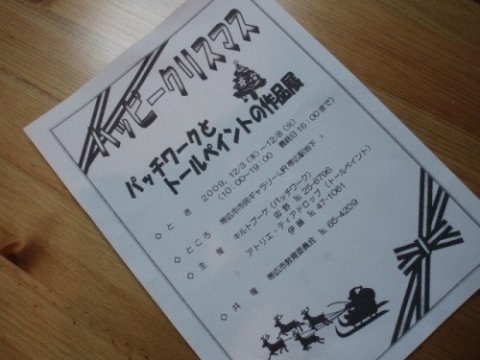 ハッピークリスマス
パッチワークと
トールペイントの作品展
◇ とき 2009. 12/3(木)~12/8(火)
(10:00~19:00 最終日16:00まで)
◇ ところ 帯広市市民ギャラリー(JR帯広駅地下)
◇ 主催 キルトブーケ(パッチワーク)
℡ 25-6796
アトリエ・ティアドロップ(トールペイント)
伊藤 ℡ 47-1061
◇ 共催 帯広市教育委員会 ℡ 65-4209